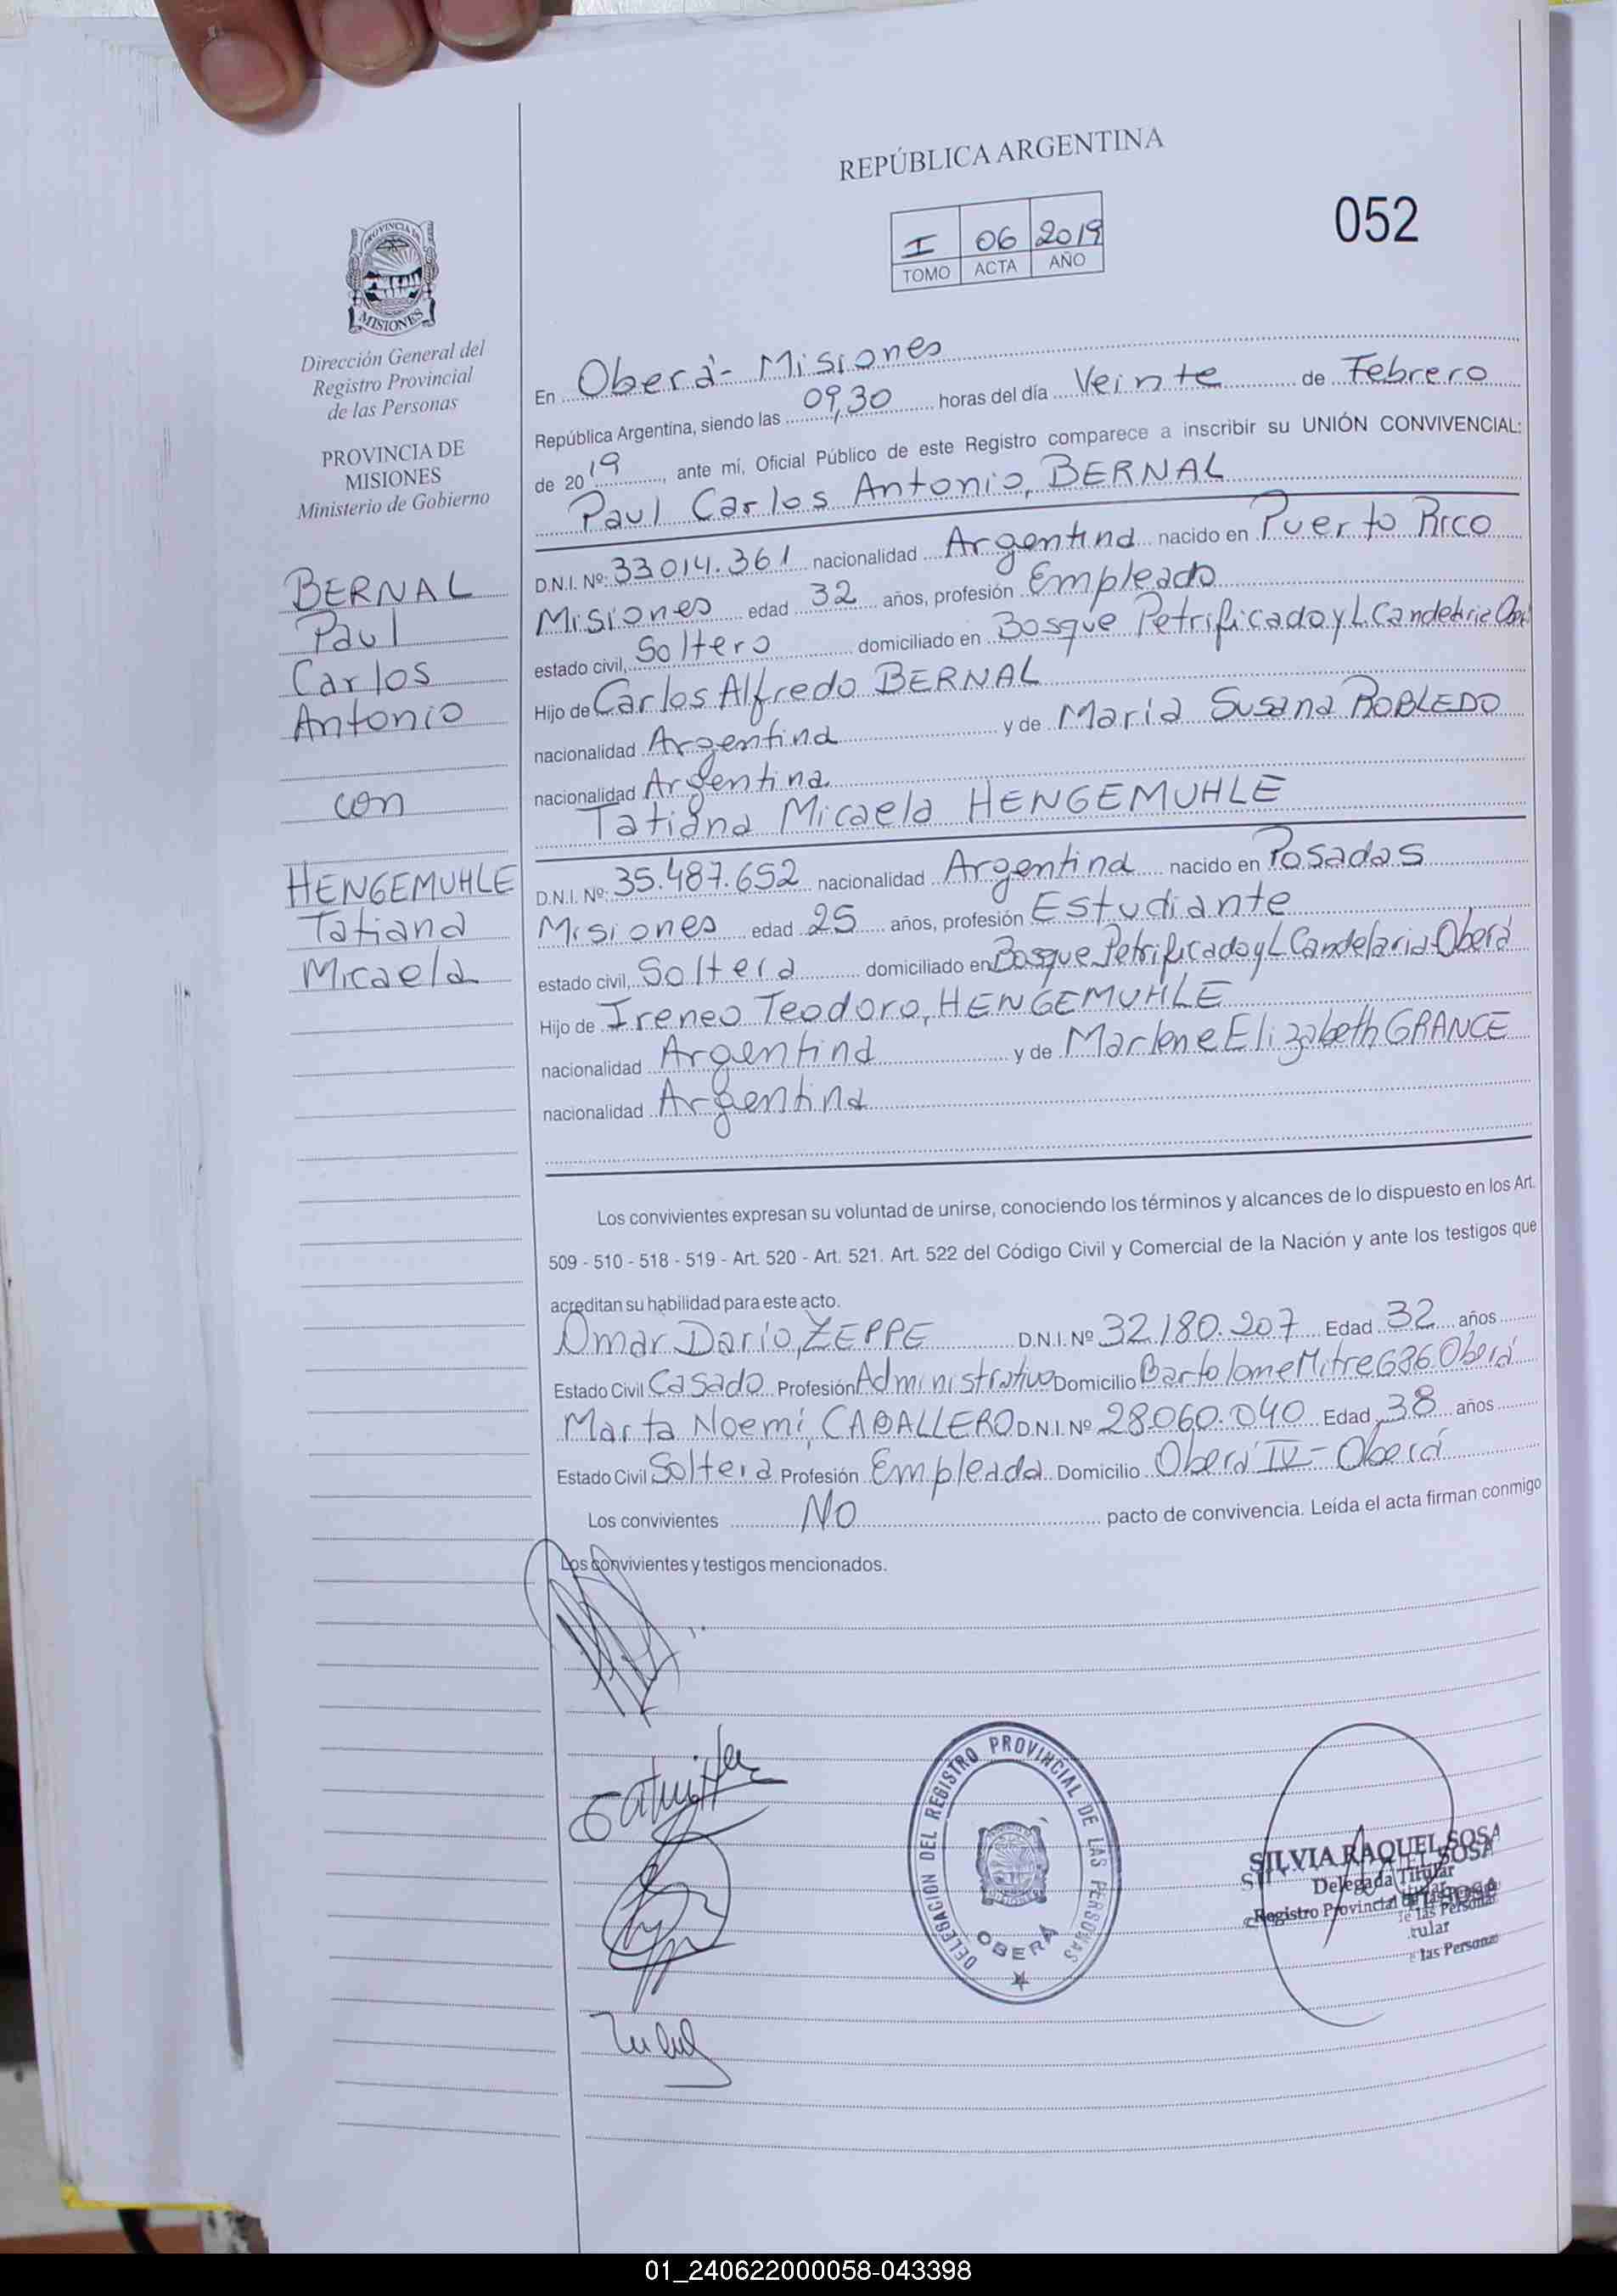 REPÚBLICA ARGENTINA
052
I 06 2019
TOMO ACTA AÑO
PROVINCIA DE
MISIONES
Dirección General del
Registro Provincial
de las Personas
PROVINCIA DE
MISIONES
Ministerio de Gobierno
BERNAL
Paul
Carlos
Antonio
con
HENGEMUHLE
Tatiana
Micaela
En Oberá - Misiones
República Argentina, siendo las 09,30 horas del día Veinte de Febrero
de 2019, ante mí, Oficial Público de este Registro comparece a inscribir su UNIÓN CONVIVENCIAL:
Paul Carlos Antonio, BERNAL
D.N.I. Nº: 33014.361 nacionalidad Argentina nacido en Puerto Rico
Misiones edad 32 años, profesión Empleado
estado civil, Soltero domiciliado en Bosque Petrificado y L. Candelaria
Hijo de Carlos Alfredo BERNAL
nacionalidad Argentina y de Maria Susana ROBLEDO
nacionalidad Argentina
Tatiana Micaela HENGEMUHLE
D.N.I. Nº: 35.487.652 nacionalidad Argentina nacido en Posadas
Misiones edad 25 años, profesión Estudiante
estado civil, Soltera domiciliado en Bosque Petrificado y L Candelaria-Oberá
Hijo de Ireneo Teodoro, HENGEMUHLE
nacionalidad Argentina y de Marlene Elizabeth, GRANCE
nacionalidad Argentina
Los convivientes expresan su voluntad de unirse, conociendo los términos y alcances de lo dispuesto en los Art.
509 - 510 - 518 - 519 - Art. 520 - Art. 521. Art. 522 del Código Civil y Comercial de la Nación y ante los testigos que
acreditan su habilidad para este acto.
Omar Dario, ZEPPE D.N.I. Nº 32.180.207 Edad 32 años
Estado Civil Casado Profesión Administrativo Domicilio Bartolome Mitre 686 Oberá
Marta Noemí, CABALLERO D.N.I. Nº 28.060.040 Edad 38 años
Estado Civil Soltera Profesión Empleada Domicilio Oberá IV - Oberá
Los convivientes NO pacto de convivencia. Leída el acta firman conmigo
Los convivientes y testigos mencionados.
DELEGACIÓN DEL REGISTRO PROVINCIAL DE LAS PERSONAS
OBERÁ
SILVIA RAQUEL SOSA
Delegada Titular
Registro Provincial de las Personas
tular
las Personas
01_240622000058-043398